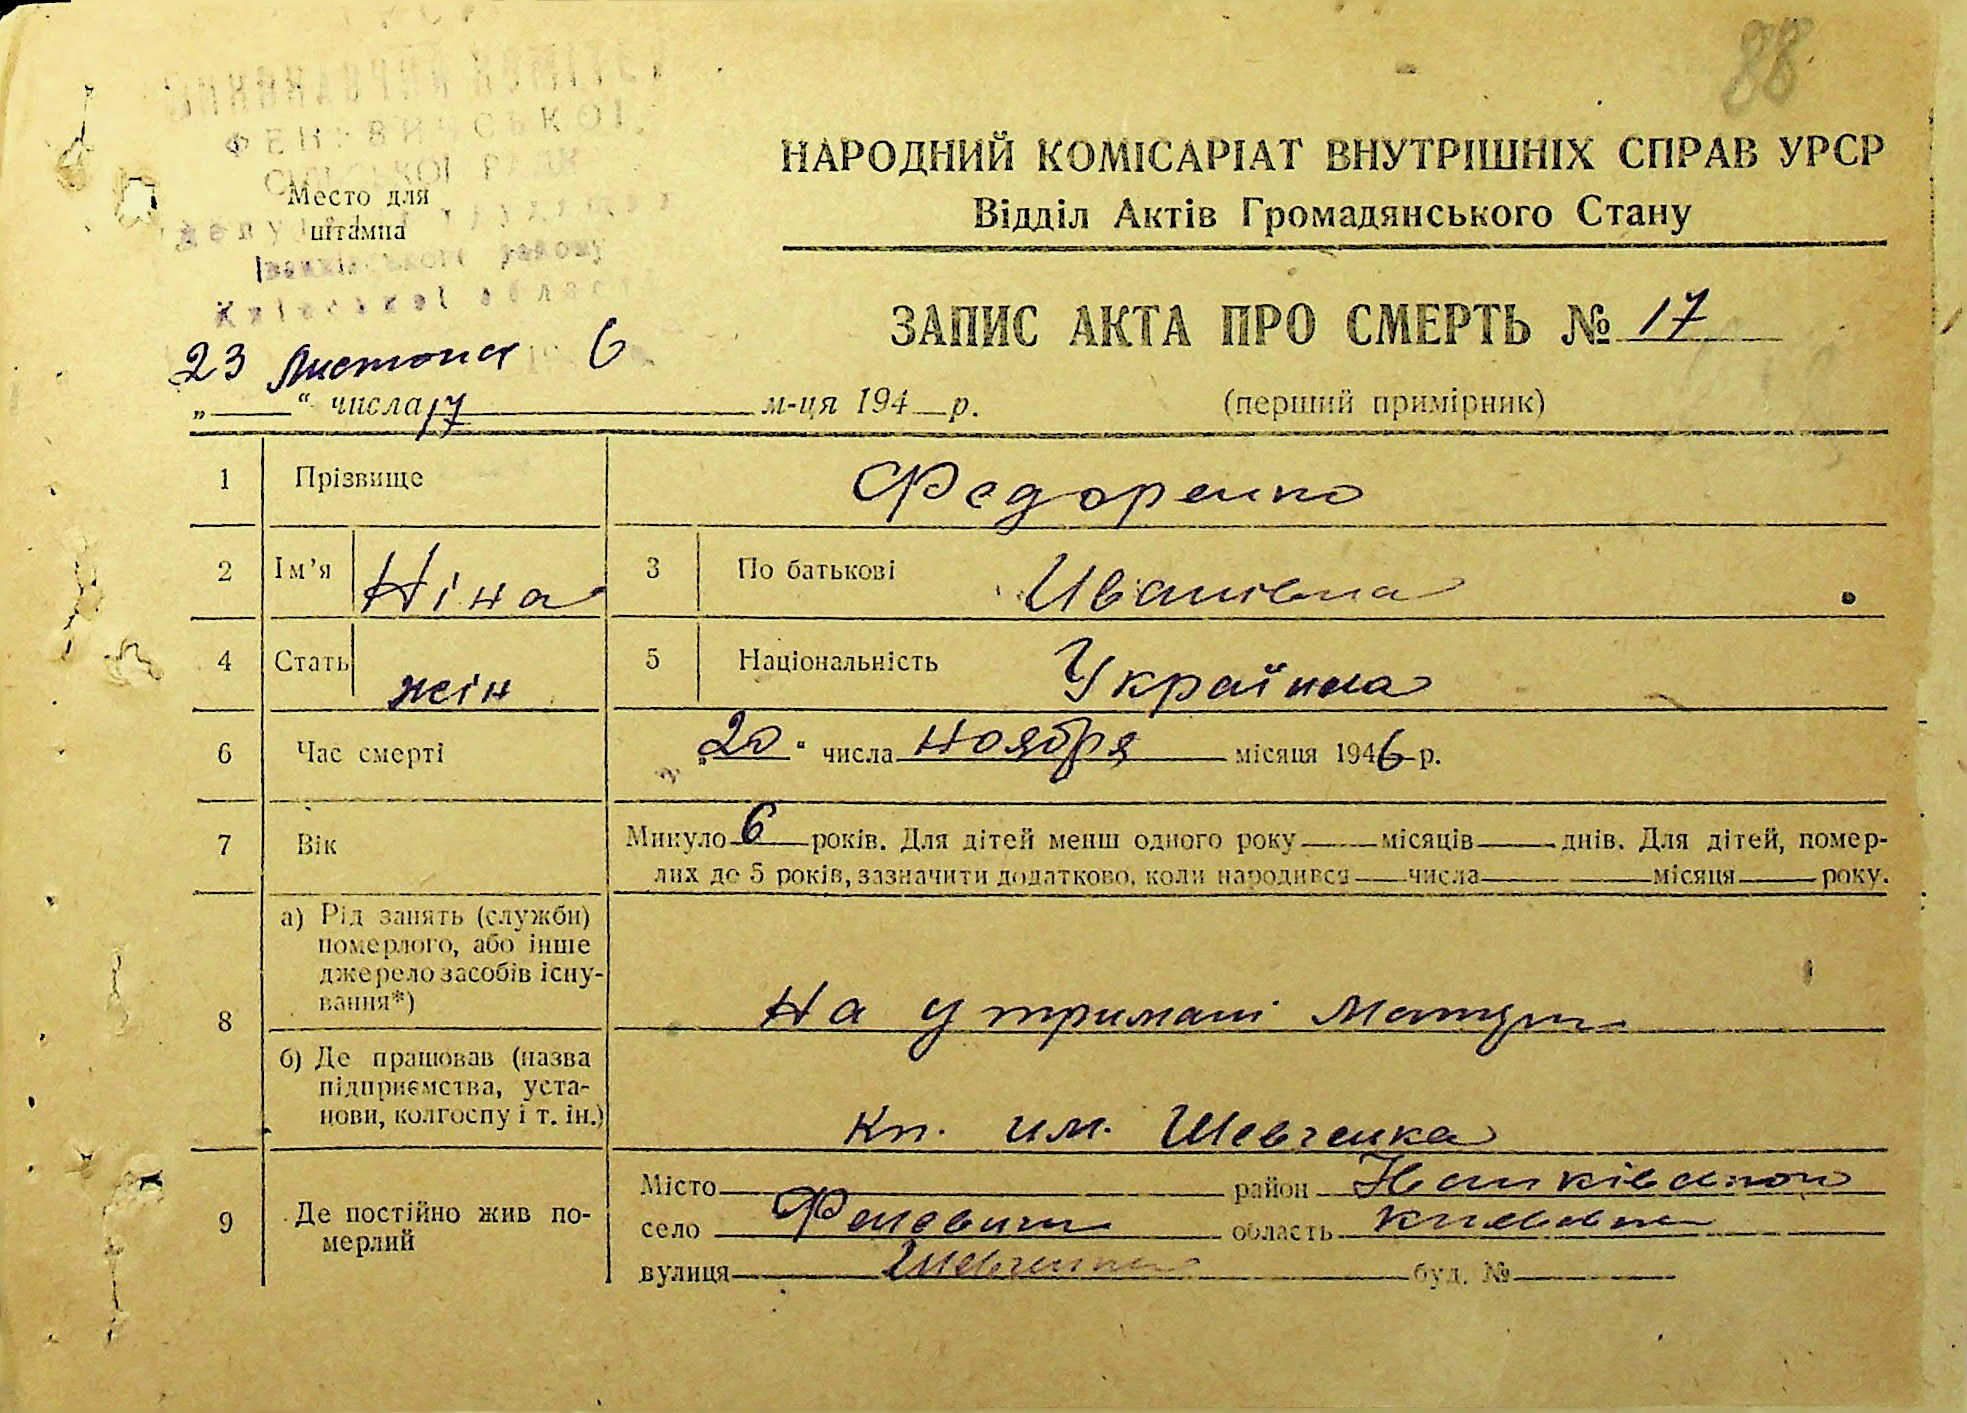 88
ФЕНЕВИЧСЬКОЇ
СІЛЬСЬКОЇ РАДИ
Место для
штампа
району
Київської області
НАРОДНИЙ КОМІСАРІАТ ВНУТРІШНІХ СПРАВ УРСР
Відділ Актів Громадянського Стану
ЗАПИС АКТА ПРО СМЕРТЬ № 17
23 Листопад 6
„ “ числа 17 м-ця 194 р. (перший примірник)
1 Прізвище Федоренко
2 Ім’я Ніна 3 По батькові Иванівна
4 Стать жін 5 Національність Українка
6 Час смерті „20“ числа Ноября місяця 1946 р.
7 Вік Минуло 6 років. Для дітей менш одного року місяців днів. Для дітей, помер-
лих до 5 років, зазначити додатково, коли народився числа місяця року.
8 а) Рід занять (служби)
померлого, або інше
джерело засобів існу-
вання*)
На утримані Матери
б) Де працював (назва
підприємства, уста-
нови, колгоспу і т. ін.)
Кп. им. Шевченка
9 Де постійно жив по-
мерлий
Місто район
село Феневичи область
вулиця Шевченка буд. №